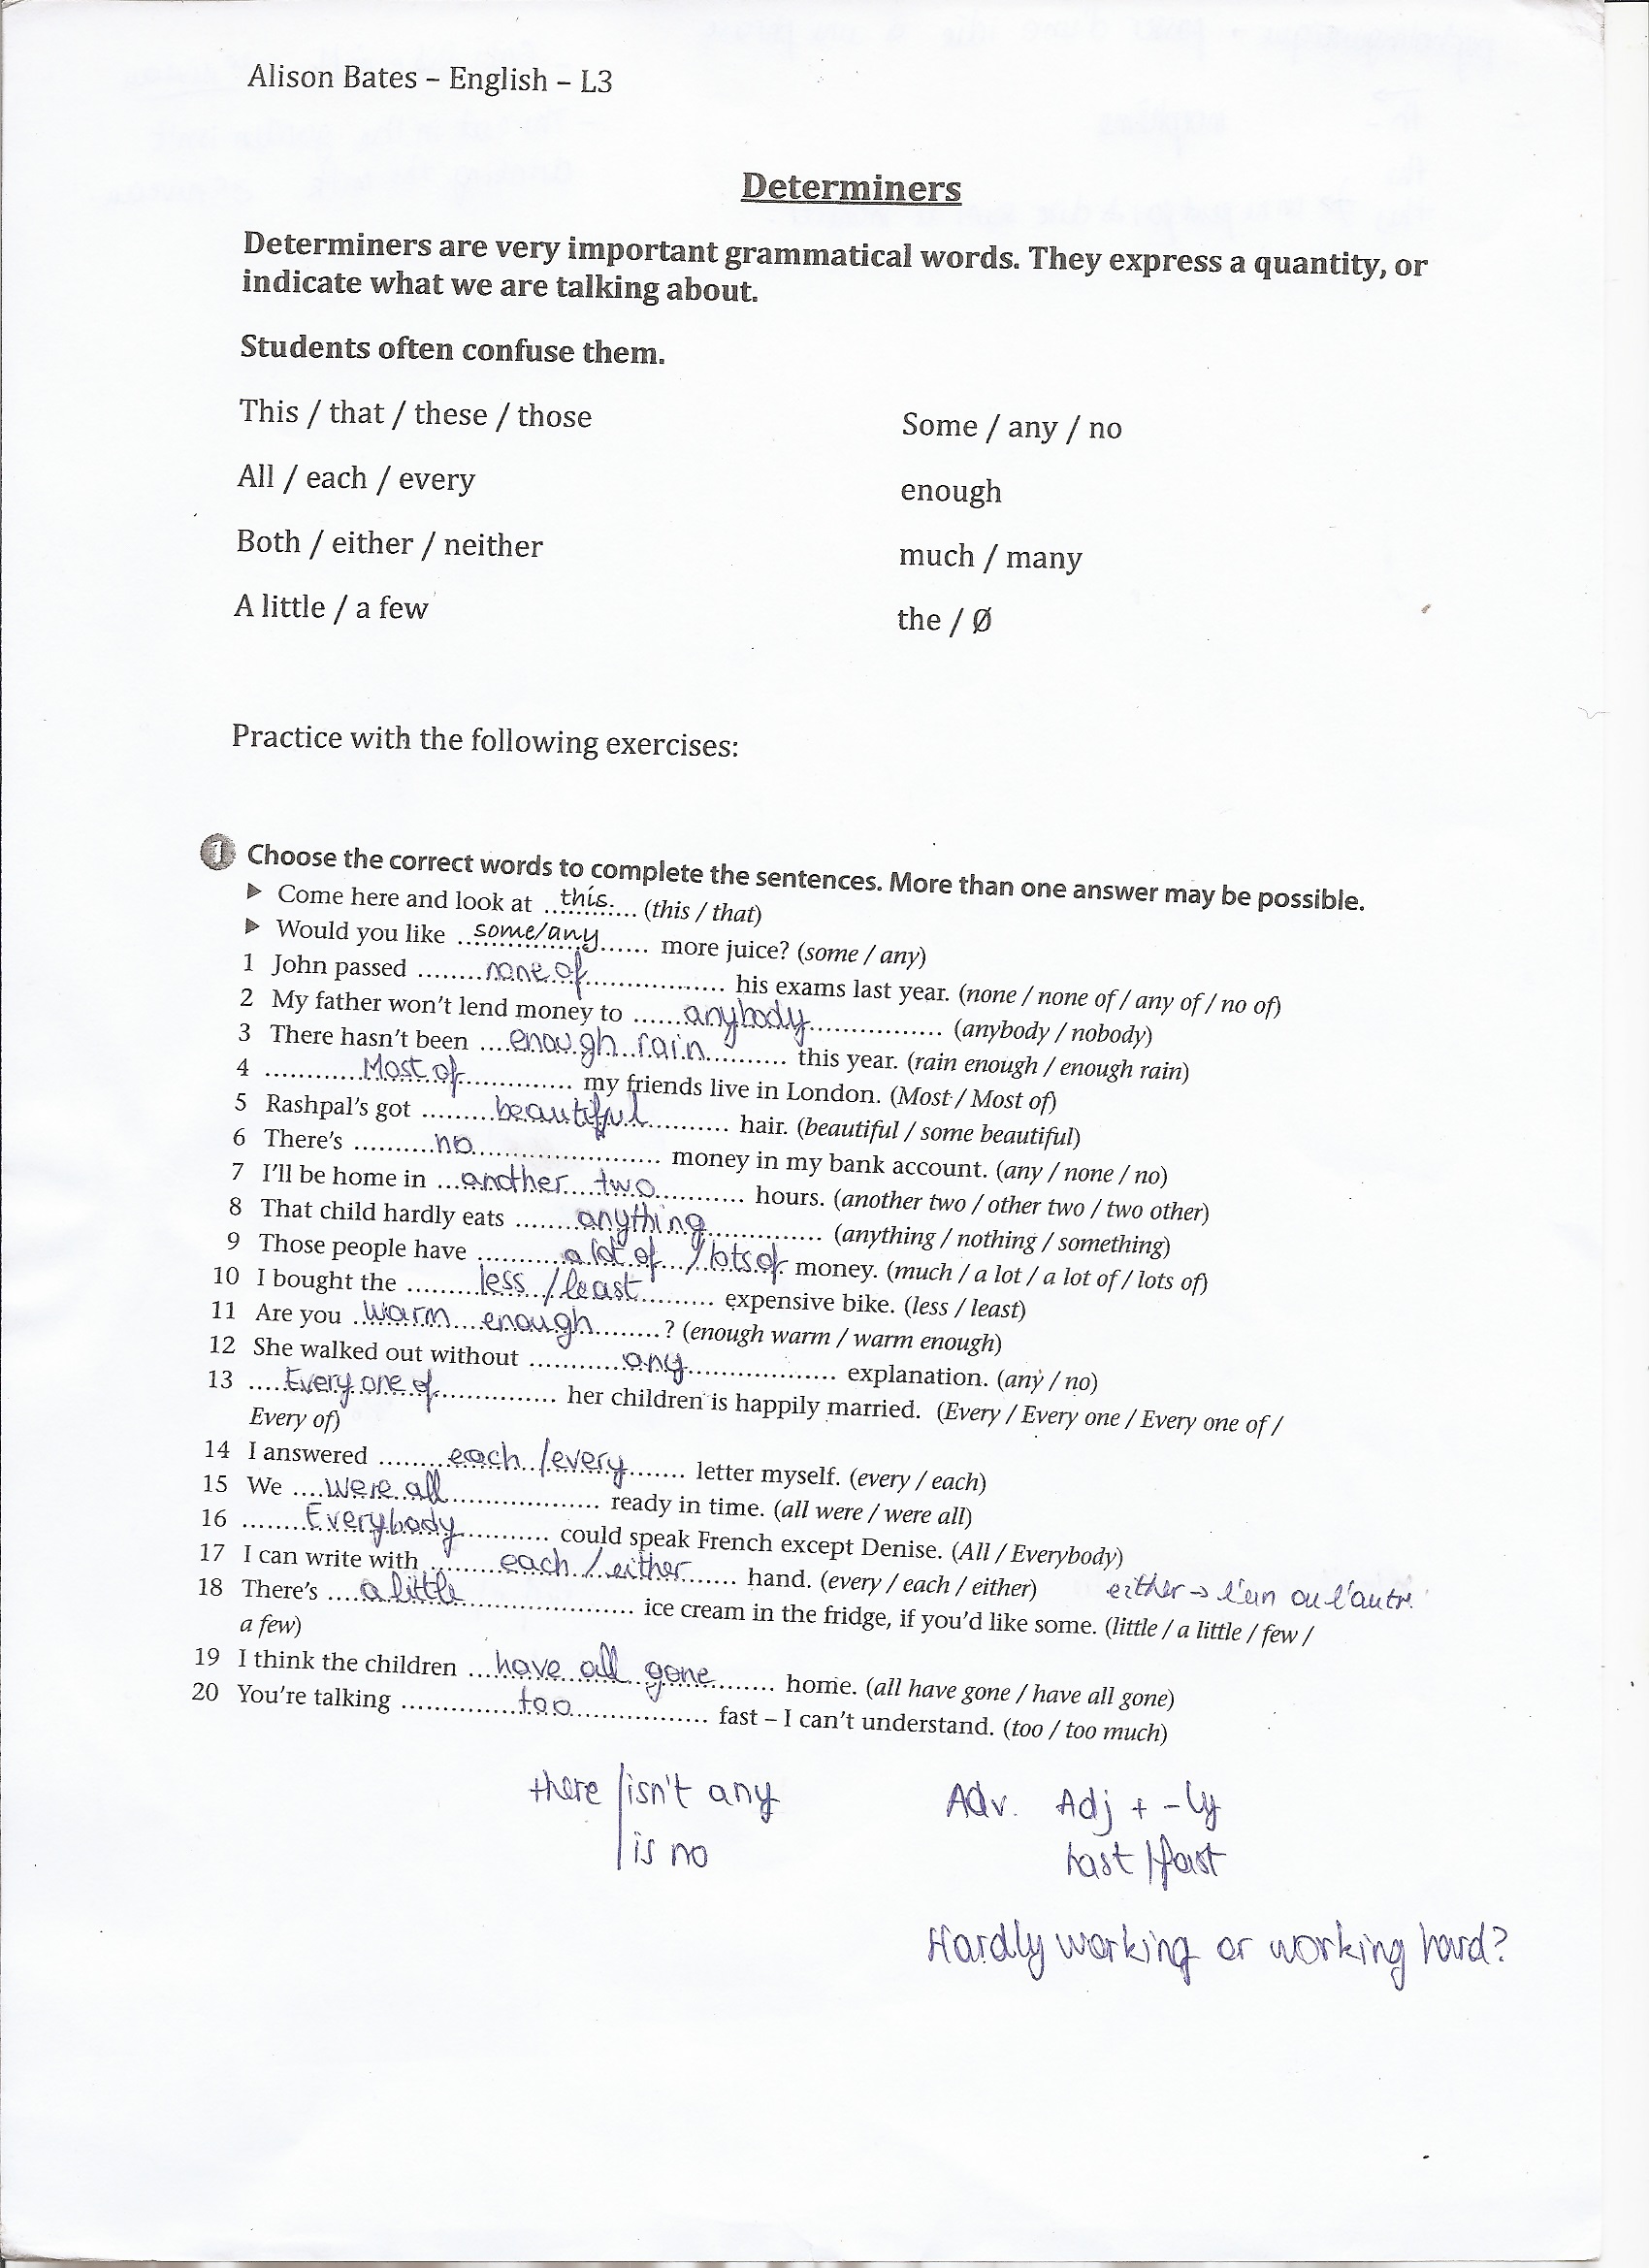 Alison Bates – English – L3
Determiners
Determiners are very important grammatical words. They express a quantity, or
indicate what we are talking about.
Students often confuse them.
This / that / these / those
All / each / every
Both / either / neither
A little / a few
Some / any / no
enough
much / many
the / Ø
Practice with the following exercises:
1 Choose the correct words to complete the sentences. More than one answer may be possible.
▶ Come here and look at ...this... (this / that)
▶ Would you like ...some/any... more juice? (some / any)
1 John passed ...none of... his exams last year. (none / none of / any of / no of)
2 My father won't lend money to ...anybody... (anybody / nobody)
3 There hasn't been ...enough rain... this year. (rain enough / enough rain)
4 ...Most of... my friends live in London. (Most / Most of)
5 Rashpal's got ...beautiful... hair. (beautiful / some beautiful)
6 There's ...no... money in my bank account. (any / none / no)
7 I'll be home in ...another two... hours. (another two / other two / two other)
8 That child hardly eats ...anything... (anything / nothing / something)
9 Those people have ...a lot of / lots of money. (much / a lot / a lot of / lots of)
10 I bought the ...less / least... expensive bike. (less / least)
11 Are you ...warm enough...? (enough warm / warm enough)
12 She walked out without ...any... explanation. (any / no)
13 ...Every one of... her children is happily married. (Every / Every one / Every one of /
Every of)
14 I answered ...each / every... letter myself. (every / each)
15 We ...were all... ready in time. (all were / were all)
16 ...Everybody... could speak French except Denise. (All / Everybody)
17 I can write with ...each / either... hand. (every / each / either) either → l'un ou l'autre
18 There's ...a little... ice cream in the fridge, if you'd like some. (little / a little / few /
a few)
19 I think the children ...have all gone... home. (all have gone / have all gone)
20 You're talking ...too... fast – I can't understand. (too / too much)
there | isn't any
| is no
Adv. Adj + -ly
hast / fast
Hardly working or working hard?